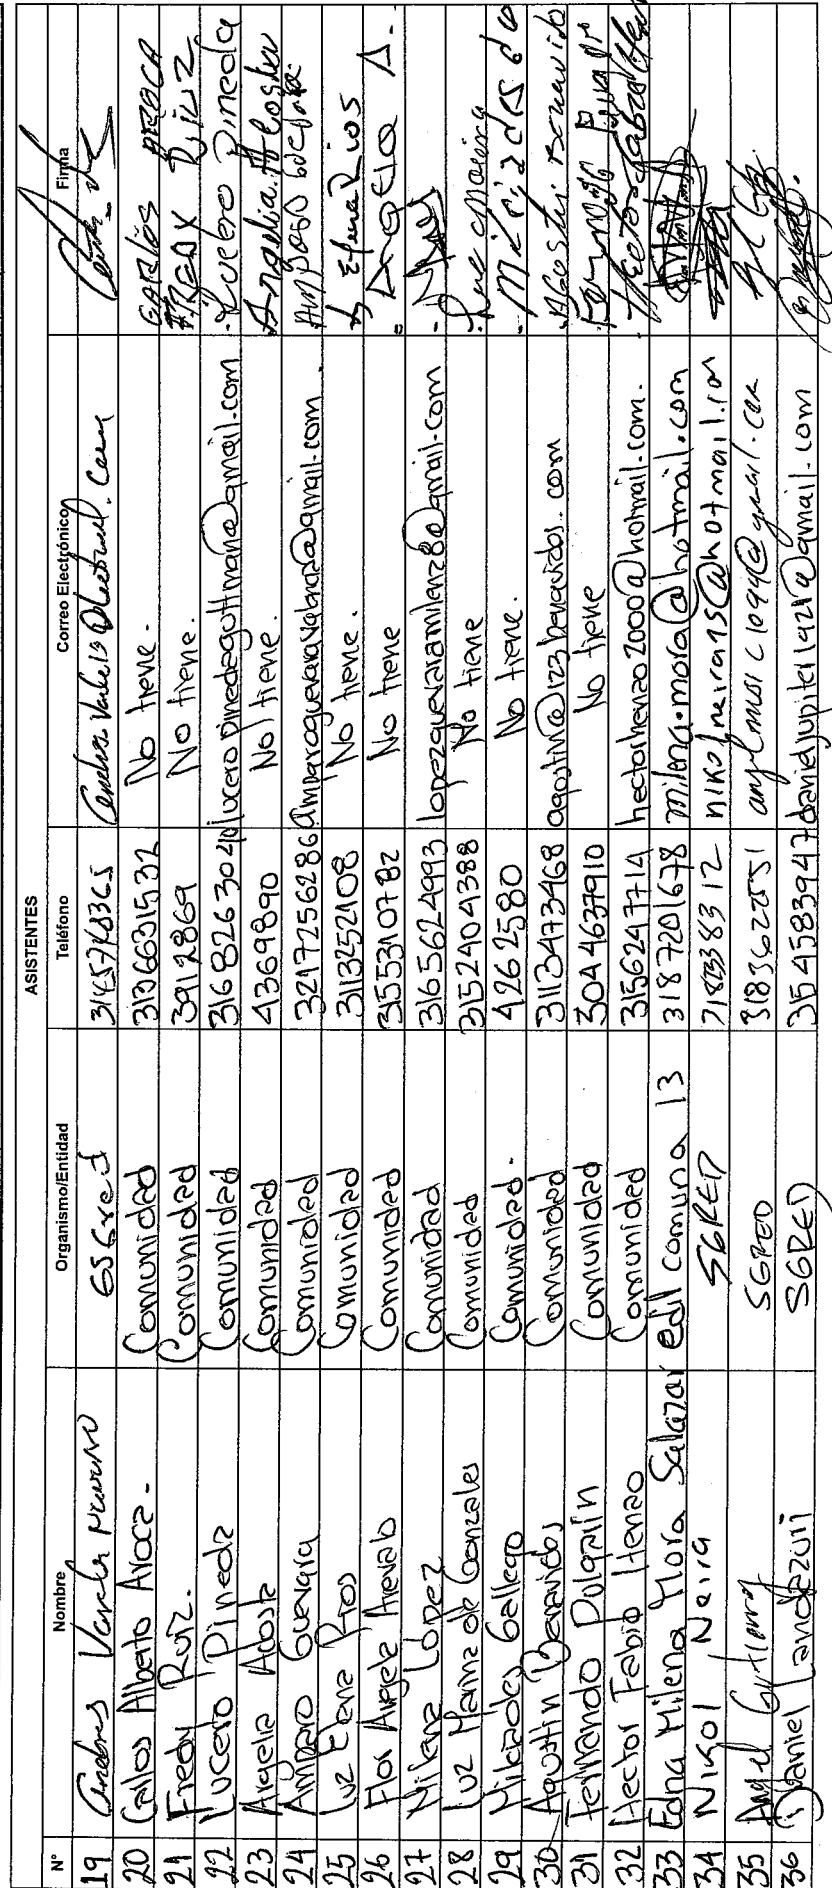 ASISTENTES
N° Nombre Organismo/Entidad Teléfono Correo Electrónico Firma
19 Andres Varela GSGred
20 Carlos Alberto Aroca. Comunidad 3136631532 No tiene. CARLOS AROCA
21 Fredy Ruiz. Comunidad 3912869 No tiene. FREDY RUIZ
22 Lucero Pineda Comunidad 3168263040 luceropinedagottman@gmail.com Lucero Pineda
23 Argelia Acosta Comunidad 4369890 No tiene. Argelia Acosta
24 Amparo Guevara Comunidad 3217256286 amparoguevara @gmail.com. Amparo
25 Luz Elena Rios Comunidad 3113252108 No tiene. Elena Rios
26 Flor Angela Arevalo Comunidad 3155310782 No tiene A.
27 Milena Lopez Comunidad 3165624993 lopezguevaramilena28@gmail.com
28 Luz Marina de Gonzales Comunidad 3152404388 No tiene
29 Milciades Gallego Comunidad. 4262580 No tiene. Milciades
30 Agustin Benavides Comunidad 3113473468 agostin@123benavidos.com Agustin Benavido
31 Fernando Pulgarin Comunidad 3044637910 No tiene Fernando
32 Hector Fabio Henao Comunidad 3156247714 hectorhenao2000@hotmail.com. Hector Fabio Henao
33 Edna Milena Mora Salazar edil comuna 13 3187201678 milena.mora@hotmail.com
34 Nikol Neira SGRED nikolneira95@hotmail.com
35 Angel Gutierrez SGRED
36 Daniel Landazuri SGRED 354583947 danieljupiter1921@gmail.com